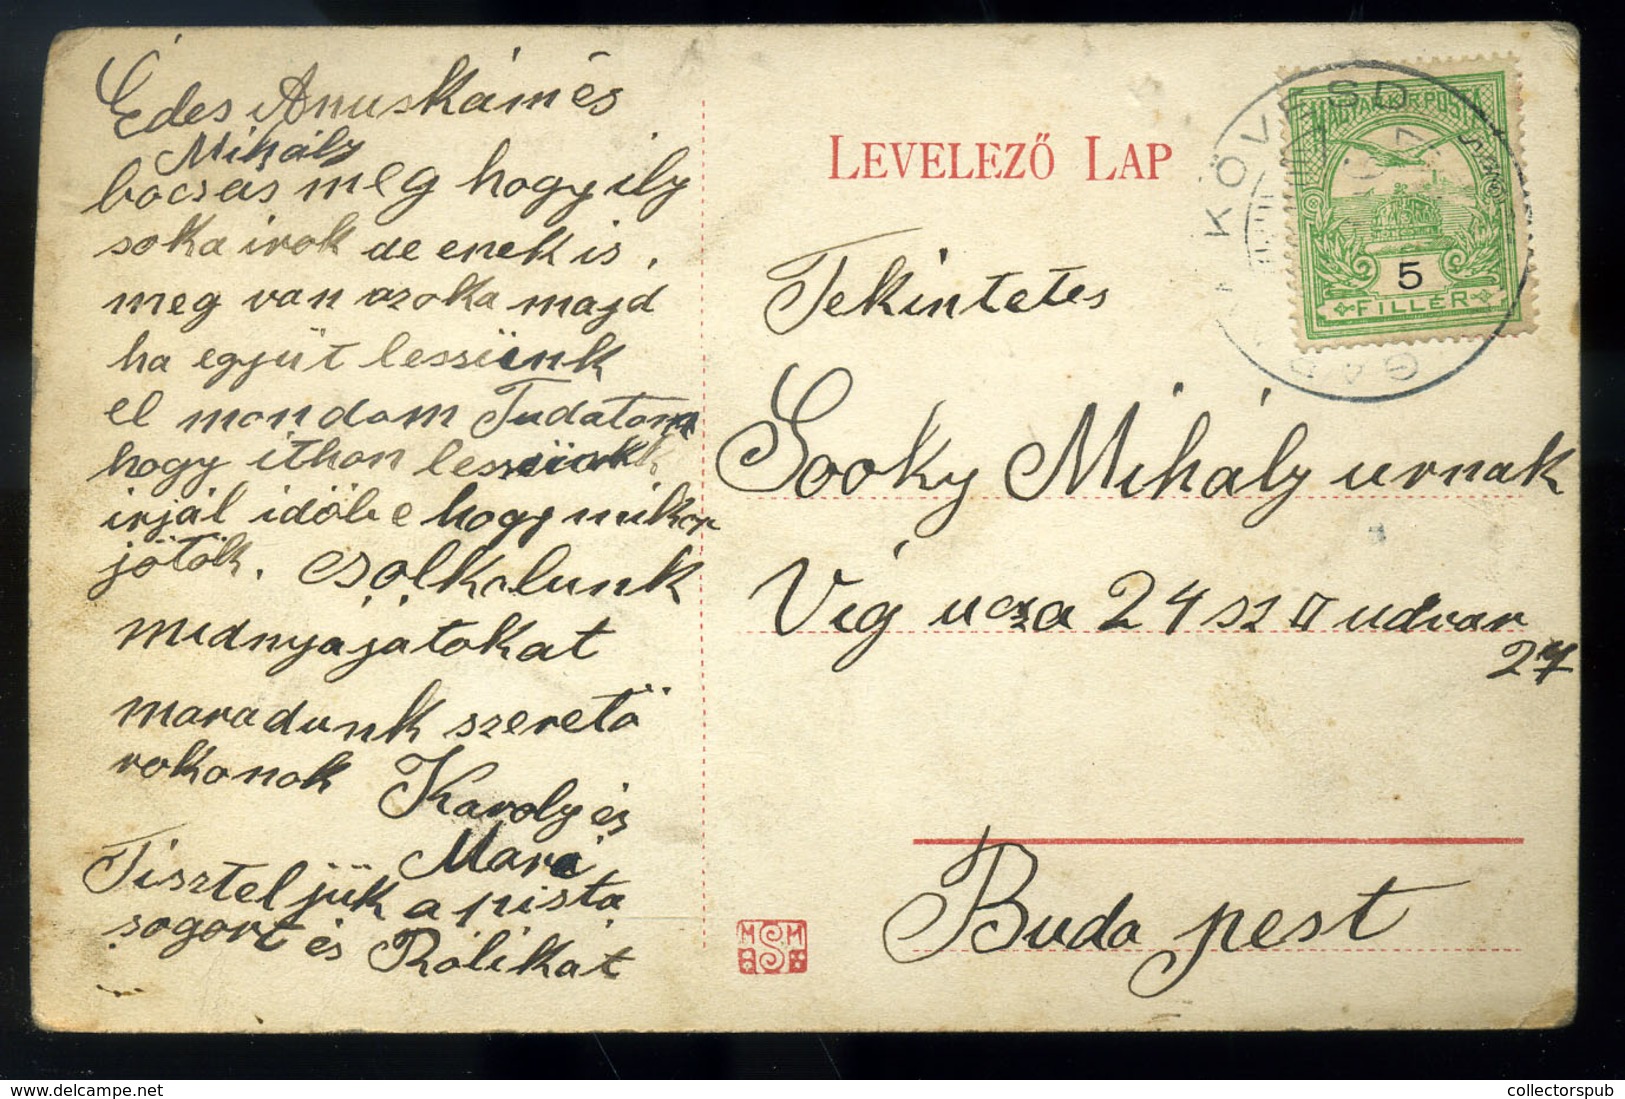 Édes Anuskám és
Mihály
bocsás meg hogy ily
soka irok de enek is,
meg van azoka majd
ha együt lessünk
el mondom Tudatom
hogy ithon lessünk
irjál időbe hogy mikor
jötök. csólkolunk
midnyájátokat
maradunk szerető
rokonok Karoly és
Mari
Tiszteljük a pista
sogort és Rólikát
LEVELEZŐ LAP
KÖVESD
MAGYAR KIR. POSTA
5
FILLÉR
Tekintetes
Sooky Mihály urnak
Vig ucza 24 sz II udvar
27
Buda pest
MSM
collectorspub.com